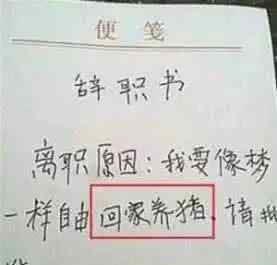 便笺
辞职书
离职原因：我要像梦
一样自由回家养猪，请批